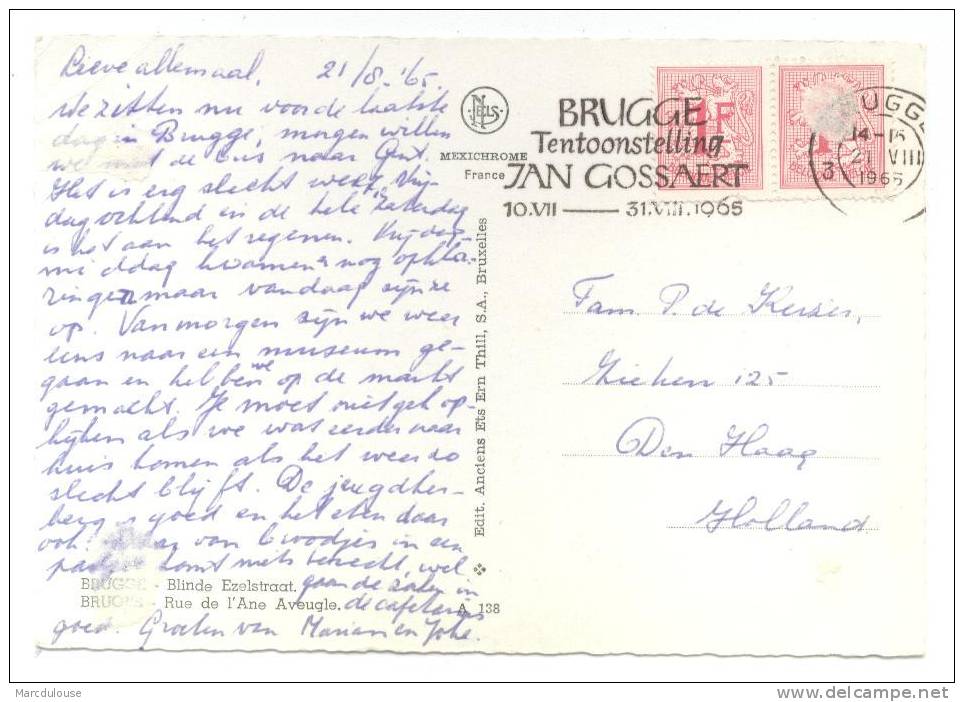 Lieve allemaal, 21/8. '65
We zitten nu voor de laatste
dag in Brugge, morgen willen
we met de bus naar Gent.
Het is erg slecht weer, Vrij-
dagochtend en de hele Zaterdag
is het aan het regenen. Vrijdag-
middag kwamen nog opkla-
ringen maar vandaag zijn ze
op. Vanmorgen zijn we weer
eens naar een museum ge-
gaan en hebben we op de markt
gemarkt. Je moet niet gek op-
kijken als we wat eerder naar
huis komen als het weer zo
slecht blijft. De jeugdher-
berg is goed en het eten daar
ook. van broodjes in een
komt niets terecht, wel
gaan de zaken in
de cafetaria's
goed. Groeten van Marian en Joke.
BRUGGE - Blinde Ezelstraat.
BRUGES - Rue de l'Ane Aveugle.
A 138
NELS
MEXICHROME
France
Edit. Anciens Ets Ern Thill, S.A., Bruxelles
BRUGGE
Tentoonstelling
JAN GOSSAERT
10.VII — 31.VIII.1965
1F
BRUGGE
14-15
21 VIII
1965
3
Fam. P. de Keizer,
Zieken 125
Den Haag
Holland
Marcdulouse
www.delcampe.net